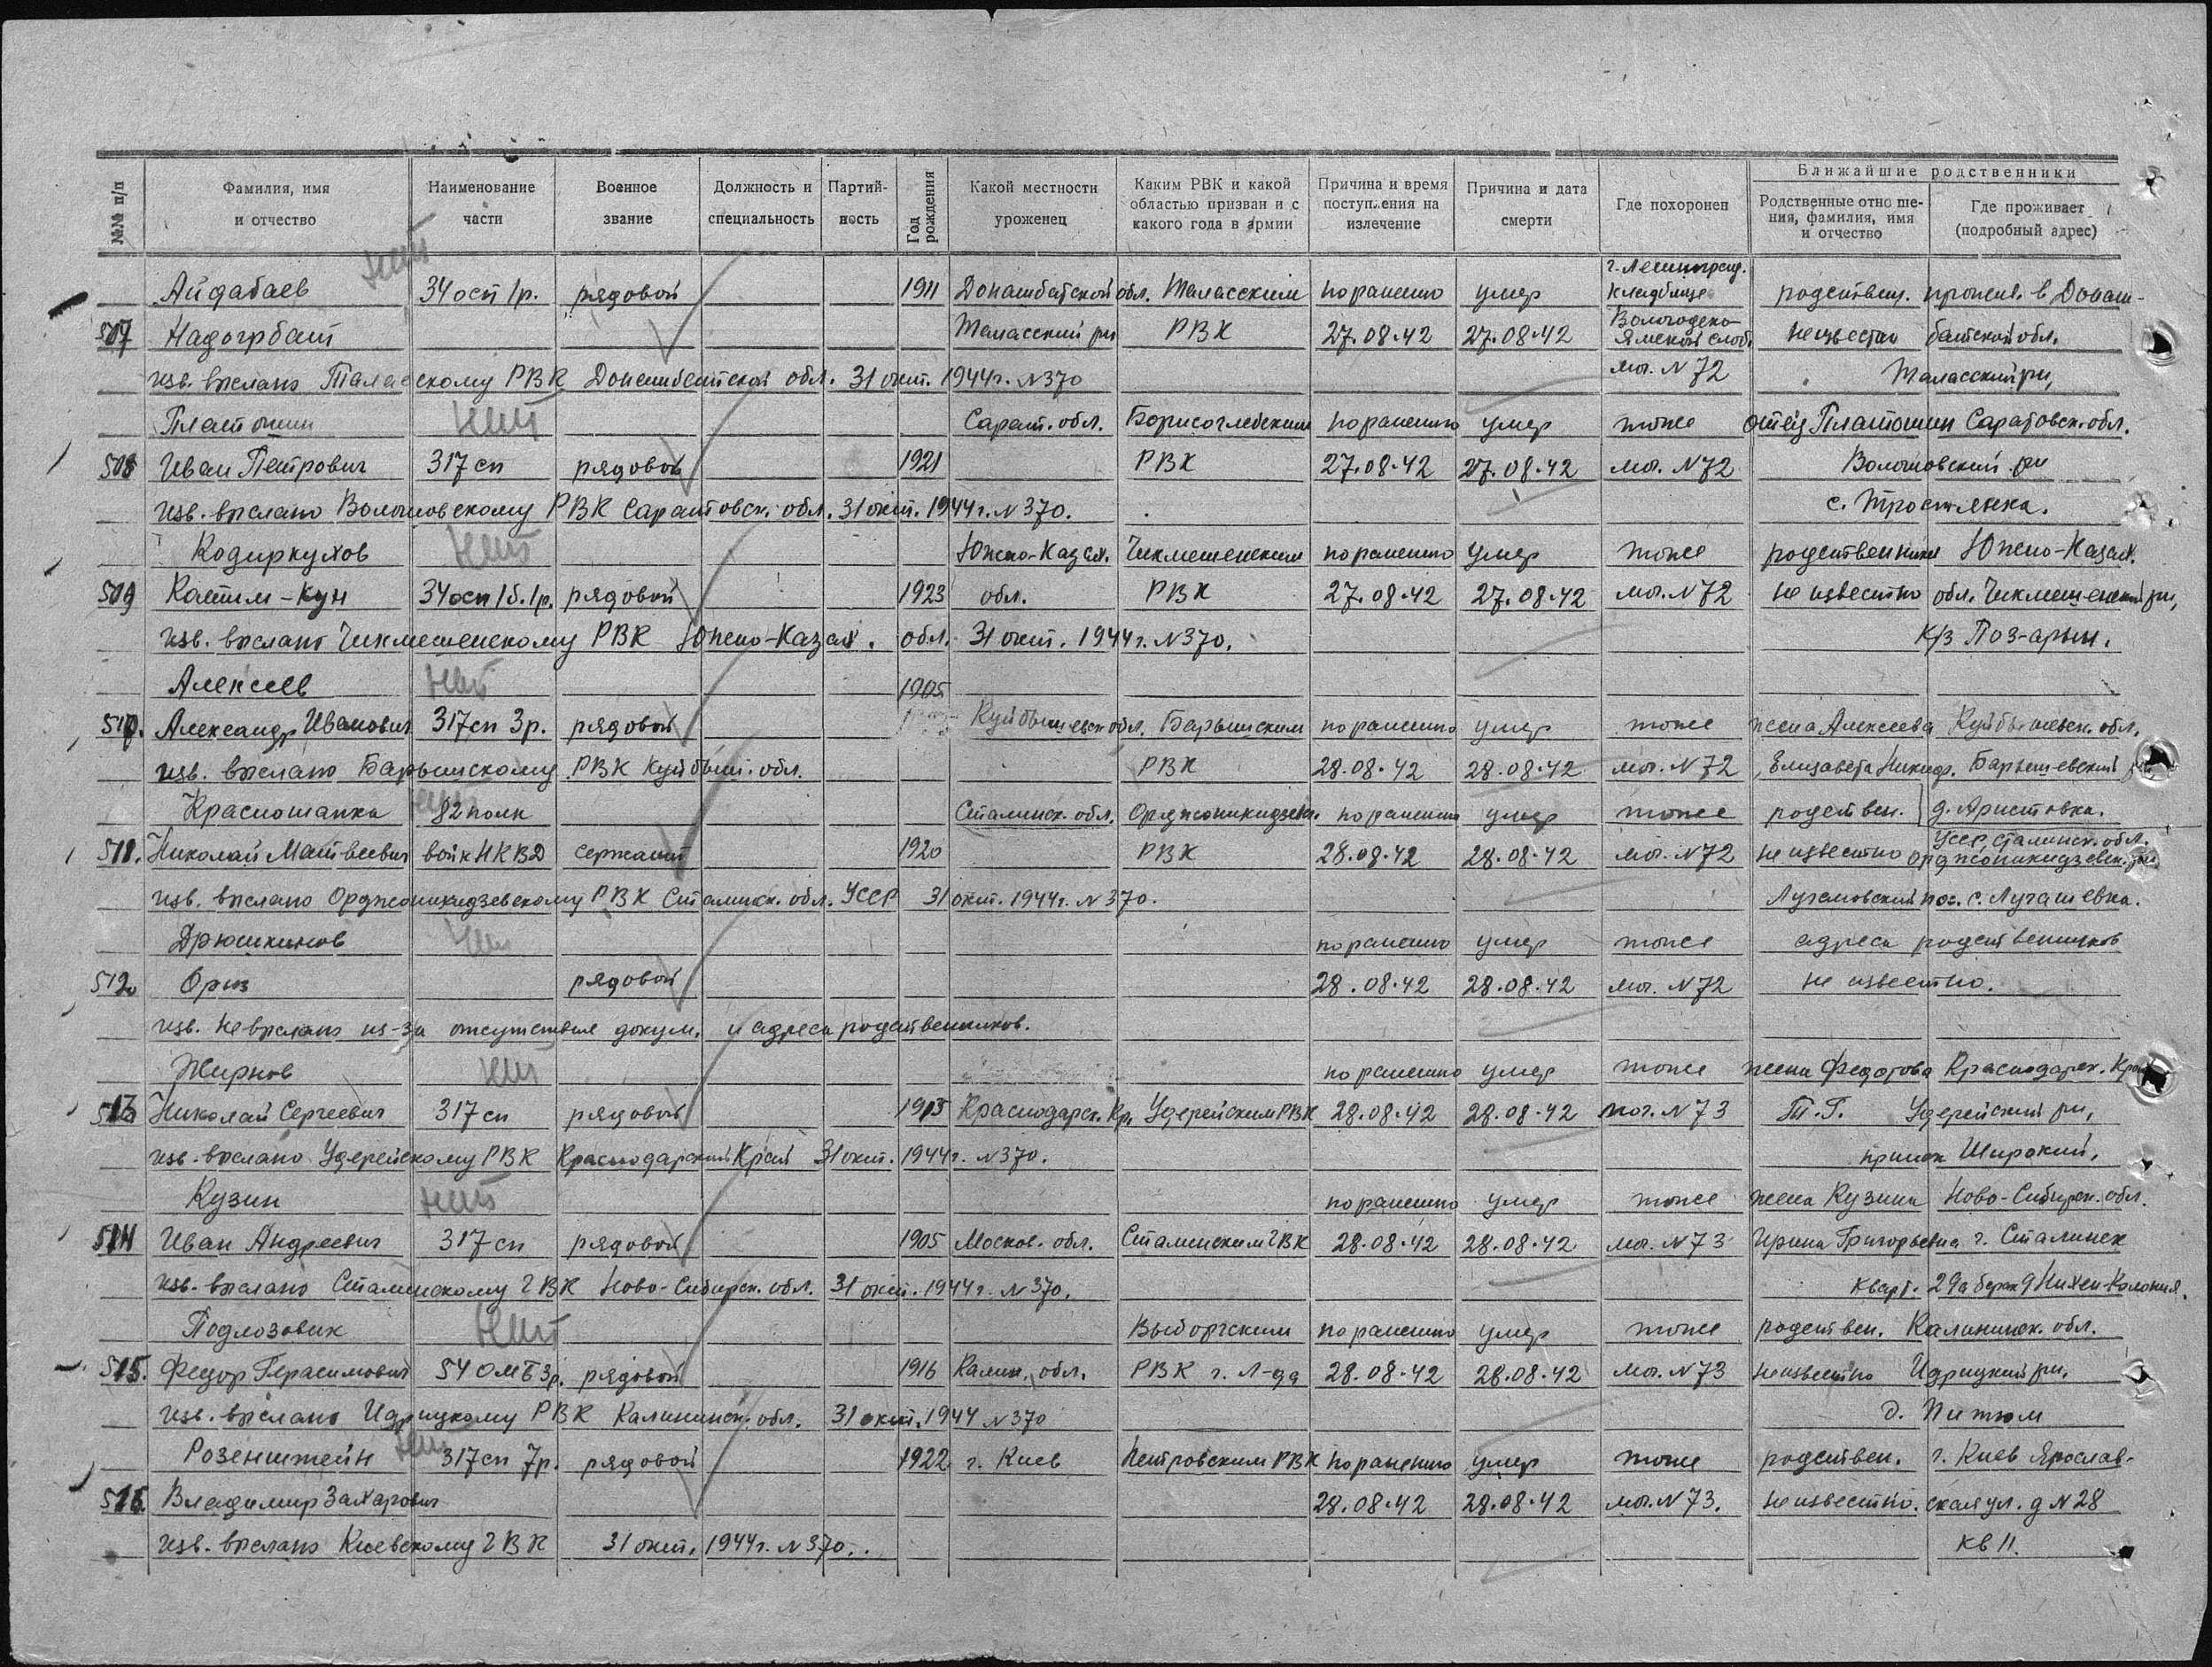 №№ п/п | Фамилия, имя и отчество | Наименование части | Военное звание | Должность и специальность | Партийность | Год рождения | Какой местности уроженец | Каким РВК и какой областью призван и с какого года в армии | Причина и время поступления на излечение | Причина и дата смерти | Где похоронен | Ближайшие родственники
Родственные отношения, фамилия, имя и отчество | Где проживает (подробный адрес)
г. Ленинград.
Айдабаев нет 34 осп 1р. рядовой 1911 Допамбатской обл. Таласским по ранению умер кладбище родствен. прожив. в Допам-
507 Надогрбат Таласский рн РВК 27.08.42 27.08.42 Вологодско-Ямской слоб. неизвестно батской обл.
изв. выслано Таласскому РВК Допамбатской обл. 31 окт. 1944г. N370 мог. N 72 Таласский рн,
Платонин нет Сарат. обл. Борисоглебским по ранению умер тоже отец Платонин Саратовск. обл.
508 Иван Петрович 317 сп рядовой 1921 РВК 27.08.42 27.08.42 мог. N72 рн
изв. выслано РВК Саратовск. обл. 31 окт. 1944г. N 370. с. Тростянка.
Кодиркулов нет Южно-Казах. Чикмешенским по ранению умер тоже родственники Южно-Казах.
509 34 осп 1б. 1р. рядовой 1923 обл. РВК 27.08.42 27.08.42 мог. N72 не известно обл. рн,
изв. выслано Чикмешенскому РВК Южно-Казах. обл. 31 окт. 1944г. N370. к/з Поз-арык.
Алексеев нет 1905
510. Александр Иванович 317 сп 3р. рядовой Куйбышевск обл. Барышским по ранению умер тоже жена Алексеева Куйбышевск. обл.
изв. выслано Барышскому РВК Куйбыш. обл. РВК 28.08.42 28.08.42 мог. N72 Елизавета Никиф. Барышевский
Красношапка 82 полк Сталинск. обл. Орджоникидзевск. по ранению умер тоже родствен. д. Аристовка.
511. Николай Матвеевич войк НКВД сержант 1920 РВК 28.08.42 28.08.42 мог. N72 не известно УССР Сталинск. обл. Орджоникидзевск. рн
изв. выслано Орджоникидзевскому РВК Сталинск. обл. УССР 31 окт. 1944г. N 370. пос. с.
Дрюшкинов нет по ранению умер тоже адреса родственников
512. Орыз рядовой 28.08.42 28.08.42 мог. N72 не известно.
изв. не выслано из-за отсутствия докум. и адреса родственников.
Жирнов нет по ранению умер тоже жена Федотова Краснодарск. Край
513 Николай Сергеевич 317 сп рядовой 1915 Краснодарск. Кр. Удерейским РВК 28.08.42 28.08.42 мог. N73 Т.Г. Удерейский рн,
изв. выслано Удерейскому РВК Краснодарский Край 31 окт. 1944г. N370. приск Широкий,
Кузин нет по ранению умер тоже жена Кузина Ново-Сибирск. обл.
514 Иван Андреевич 317 сп рядовой 1905 Москов. обл. Сталинским ГВК 28.08.42 28.08.42 мог. N73 Ирина Григорьевна г. Сталинск
изв. выслано Сталинскому ГВК Ново-Сибирск. обл. 31 окт. 1944г. N370. Кварт. 29а барак 9 Нижн-Колония.
Подлозовик нет Выборгским по ранению умер тоже родствен. Калининск. обл.
515. Федор Герасимович 54 ОМБ 3р. рядовой 1916 Калин. обл. РВК г. Л-да 28.08.42 28.08.42 мог. N73 неизвестно Идрицкий рн,
изв. выслано Идрицкому РВК Калининск. обл. 31 окт. 1944 N370 д. Питюм
Розенштейн нет 317 сп 7р. рядовой 1922 г. Киев Петровским РВК по ранению умер тоже родствен. г. Киев Ярослав-
516. Владимир Захарович 28.08.42 28.08.42 мог. N73. неизвестно. ская ул. д N28
изв. выслано Киевскому ГВК 31 окт. 1944г. N370. кв 11.